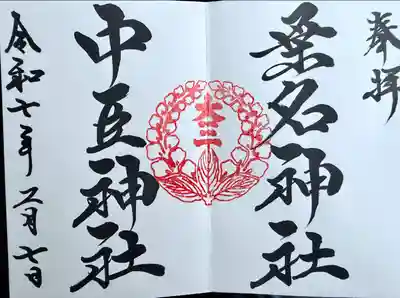 奉拝
桑名神社
中臣神社
令和七年二月七日